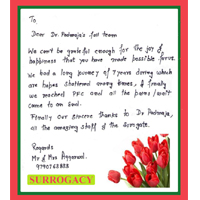 To,
Dear Dr. Padmaja's fort team
We can't be grateful enough for the joy &
happiness that you have made possible for us.
We had a long journey of 7 years during which
our hopes shattered many times, & finally
we reached PFC and all the pains / wait
came to an end.
Finally our sincere thanks to Dr Padmaja,
all the amazing staff & the surrogate.
Regards
Mr & Mrs Aggarwal.
SURROGACY